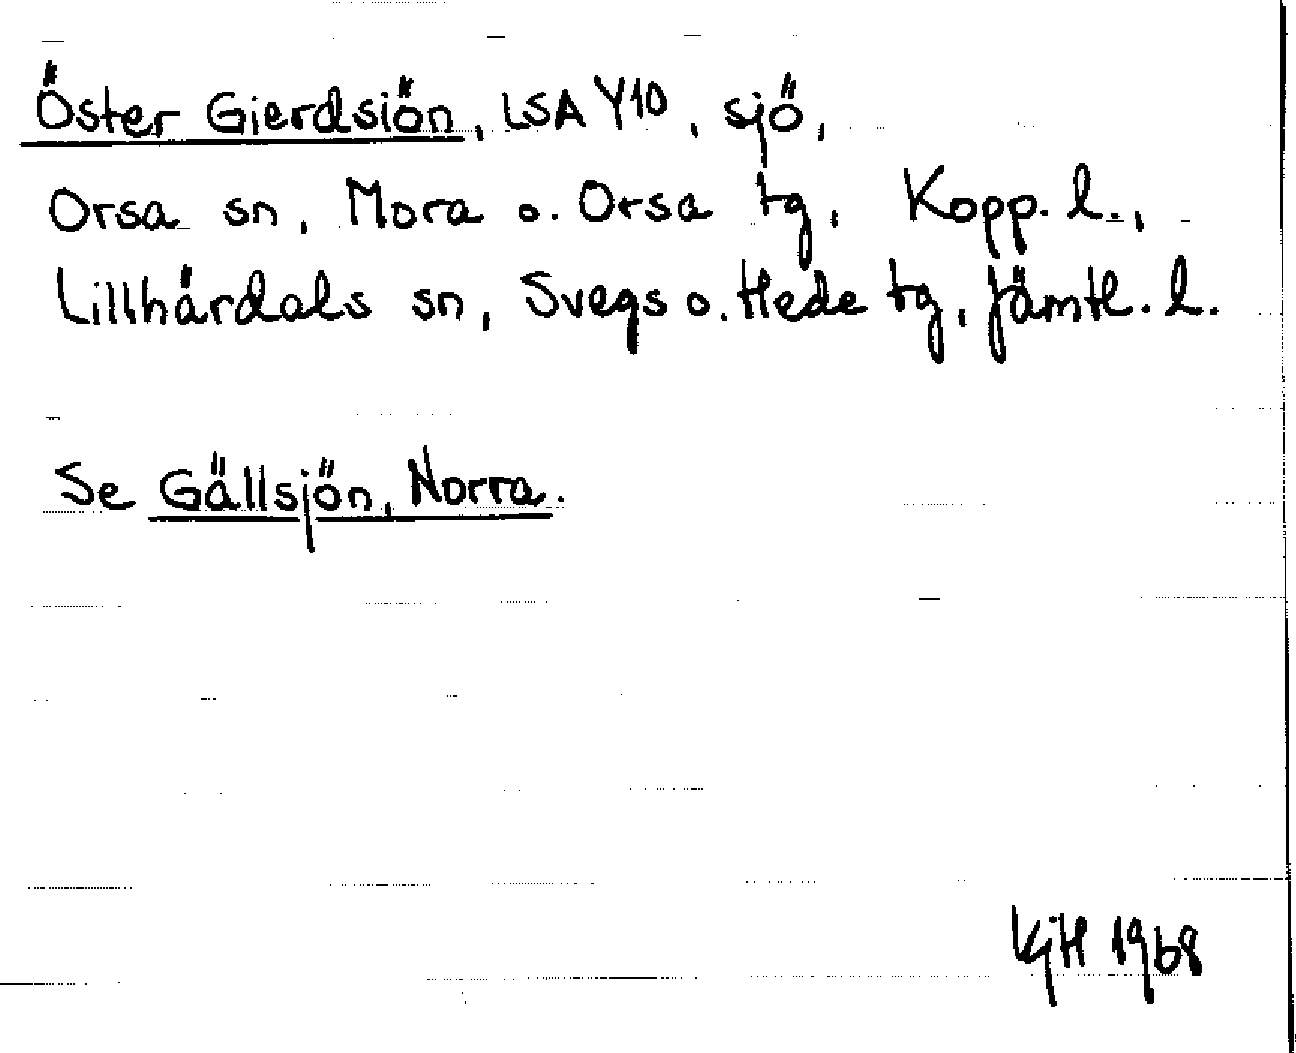 Öster Gierdsiön, LSA Y10, sjö,
Orsa sn, Mora o. Orsa tg, Kopp. l.,
Lillhärdals sn, Svegs o. Hede tg, Jämtl. l.
Se Gällsjön, Norra.
KjH 1968